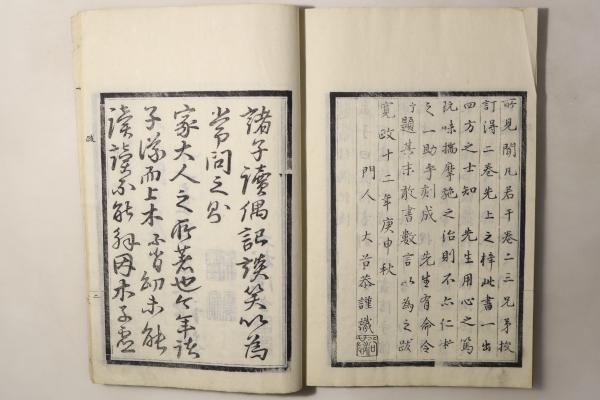 所見聞凡若干卷二三兄弟挍
訂得二卷先上之梓此書一出
四方之士知 先生用心之篤
玩味揣摩施之治則不亦仁術
之一助乎刻成 先生有命令
題其末敢書數言以為之跋
寛政十二年庚申秋
門人 大 恭謹識
諸子讀偶記談笑以為
常問之則
家大人之所著也今年諸
子謀而上木不肖幼未能
讀讀不能解因木子
跋
二